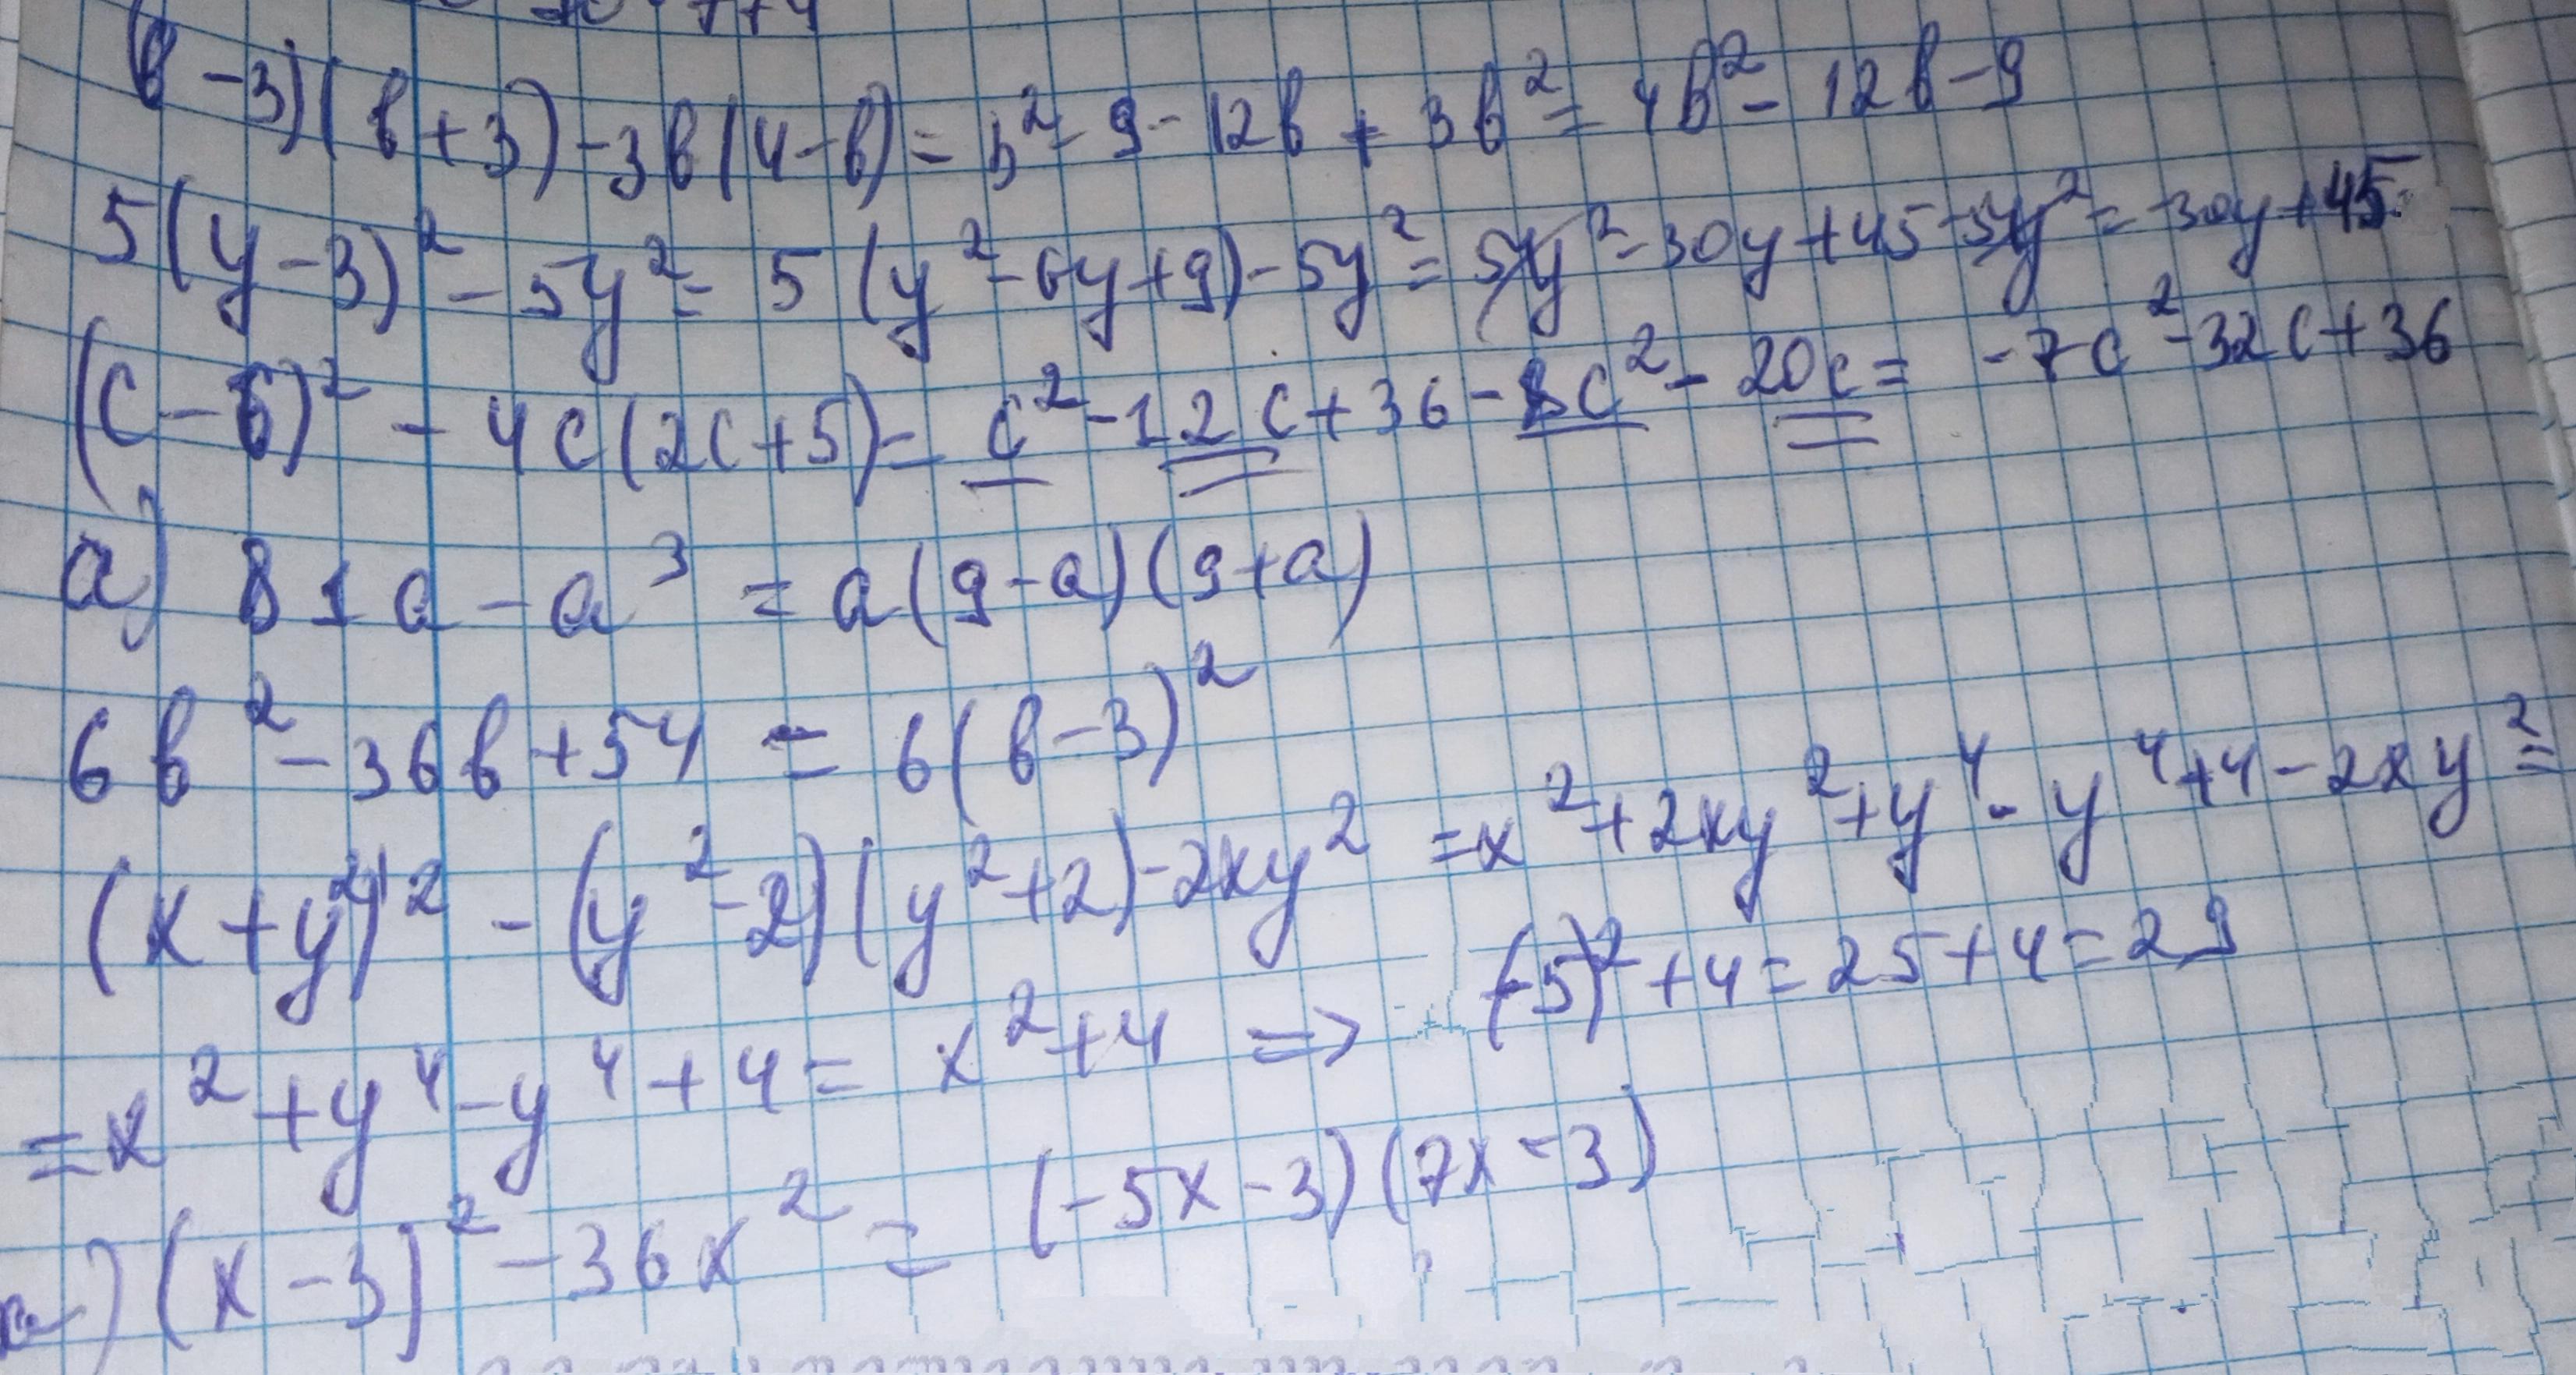 (в-3)(в+3)-3в(4-в)=в²-9-12в+3в²=4в²-12в-9
5(y-3)²-5y²=5(y²-6y+9)-5y²=5y²-30y+45-5y²=-30y+45
(c-6)²-4c(2c+5)=c²-12c+36-8c²-20c=-7c²-32c+36
а) 81a-a³=a(9-a)(9+a)
6в²-36в+54=6(в-3)²
(x+y²)²-(y²-2)(y²+2)-2xy²=x²+2xy²+y⁴-y⁴+4-2xy²=
=x²+y⁴-y⁴+4=x²+4=>(-5)²+4=25+4=29
а) (x-3)²-36x²=(-5x-3)(7x-3)